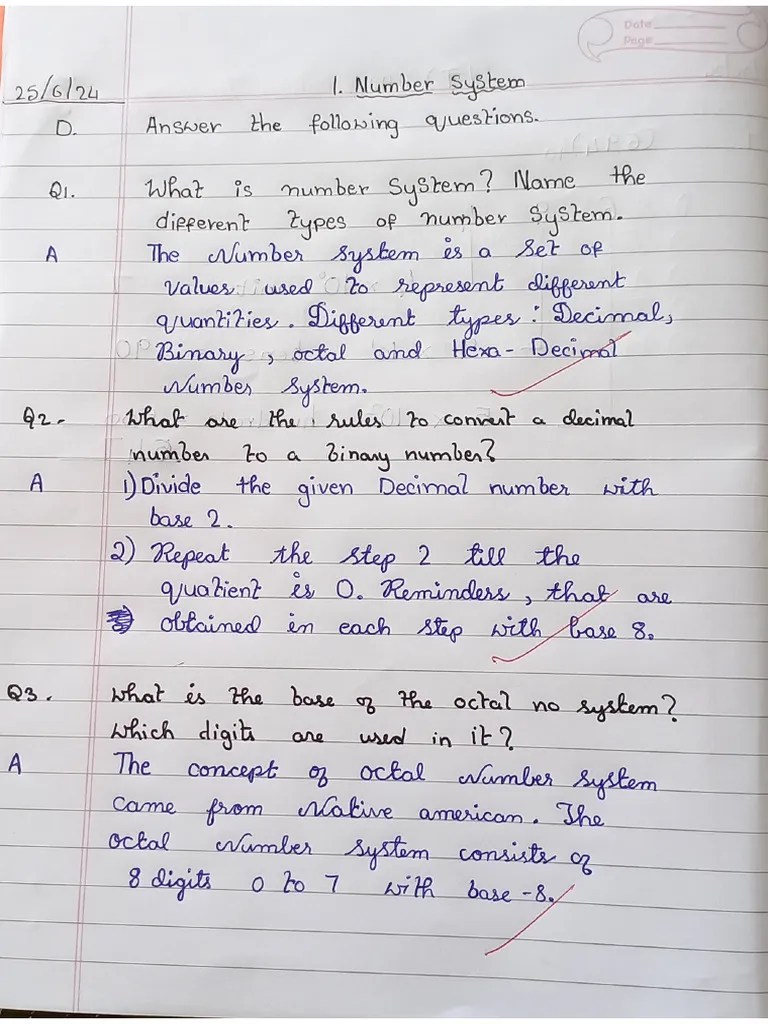 Date
Page
25/6/24
1. Number System
D. Answer the following questions.
Q1. What is number System? Name the
different types of number System.
A The Number system is a Set of
values used to represent different
quantities. Different types : Decimal,
Binary, octal and Hexa-Decimal
Number system.
Q2- What are the rules to convert a decimal
number to a binary number?
A 1) Divide the given Decimal number with
base 2.
2) Repeat the step 2 till the
quatient is 0. Reminders, that are
obtained in each step with base 8.
Q3. What is the base of the octal no system?
Which digits are used in it?
A The concept of octal Number system
came from Native american. The
octal Number system consists of
8 digits 0 to 7 with base -8.